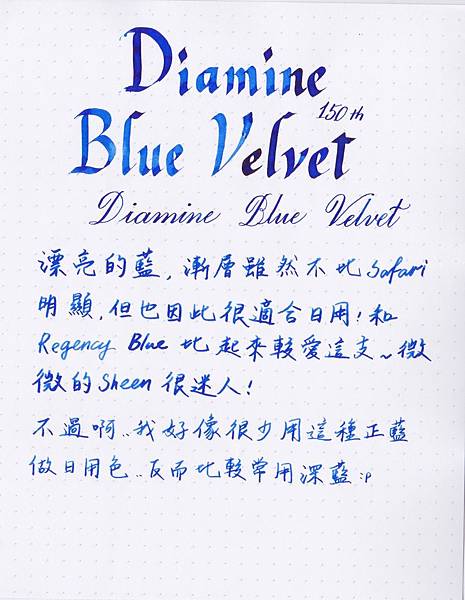 Diamine
150th
Blue Velvet
Diamine Blue Velvet
漂亮的藍,漸層雖然不比Safari
明顯,但也因此很適合日用!和
Regency Blue 比起來較愛這支~微
微的Sheen很迷人!
不過啊..我好像很少用這種正藍
做日用色..反而比較常用深藍:p